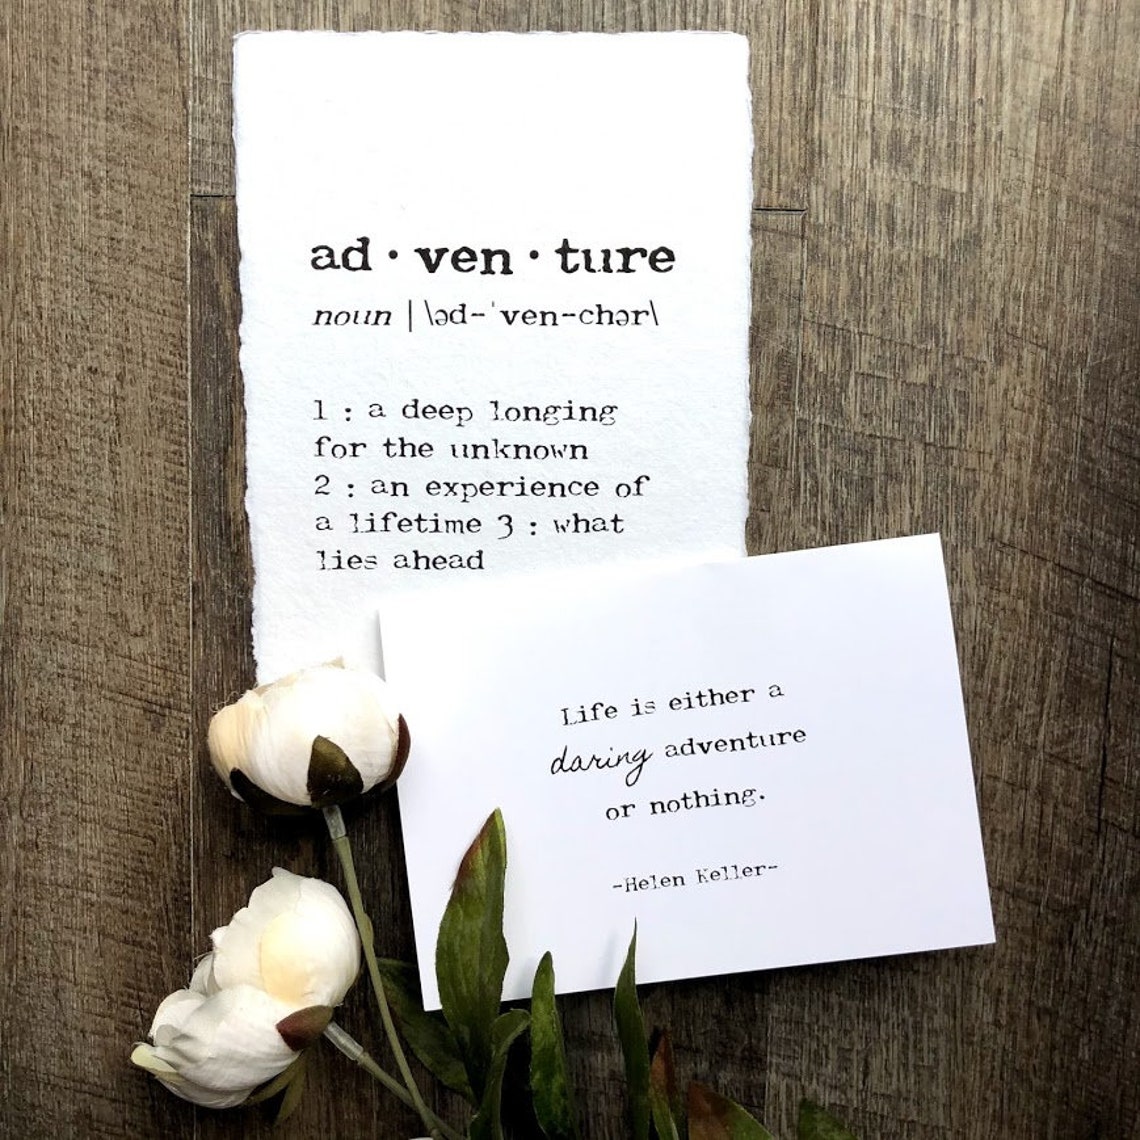 ad · ven · ture
noun | \əd-ˈven-chər\
1 : a deep longing
for the unknown
2 : an experience of
a lifetime 3 : what
lies ahead
Life is either a
daring adventure
or nothing.
-Helen Keller-